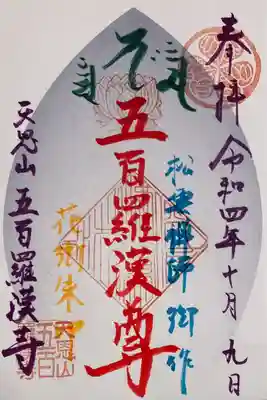 奉拝 令和四年十月九日
松雲禅師 御作
五百羅漢尊
花御朱印
天恩山 五百羅漢寺